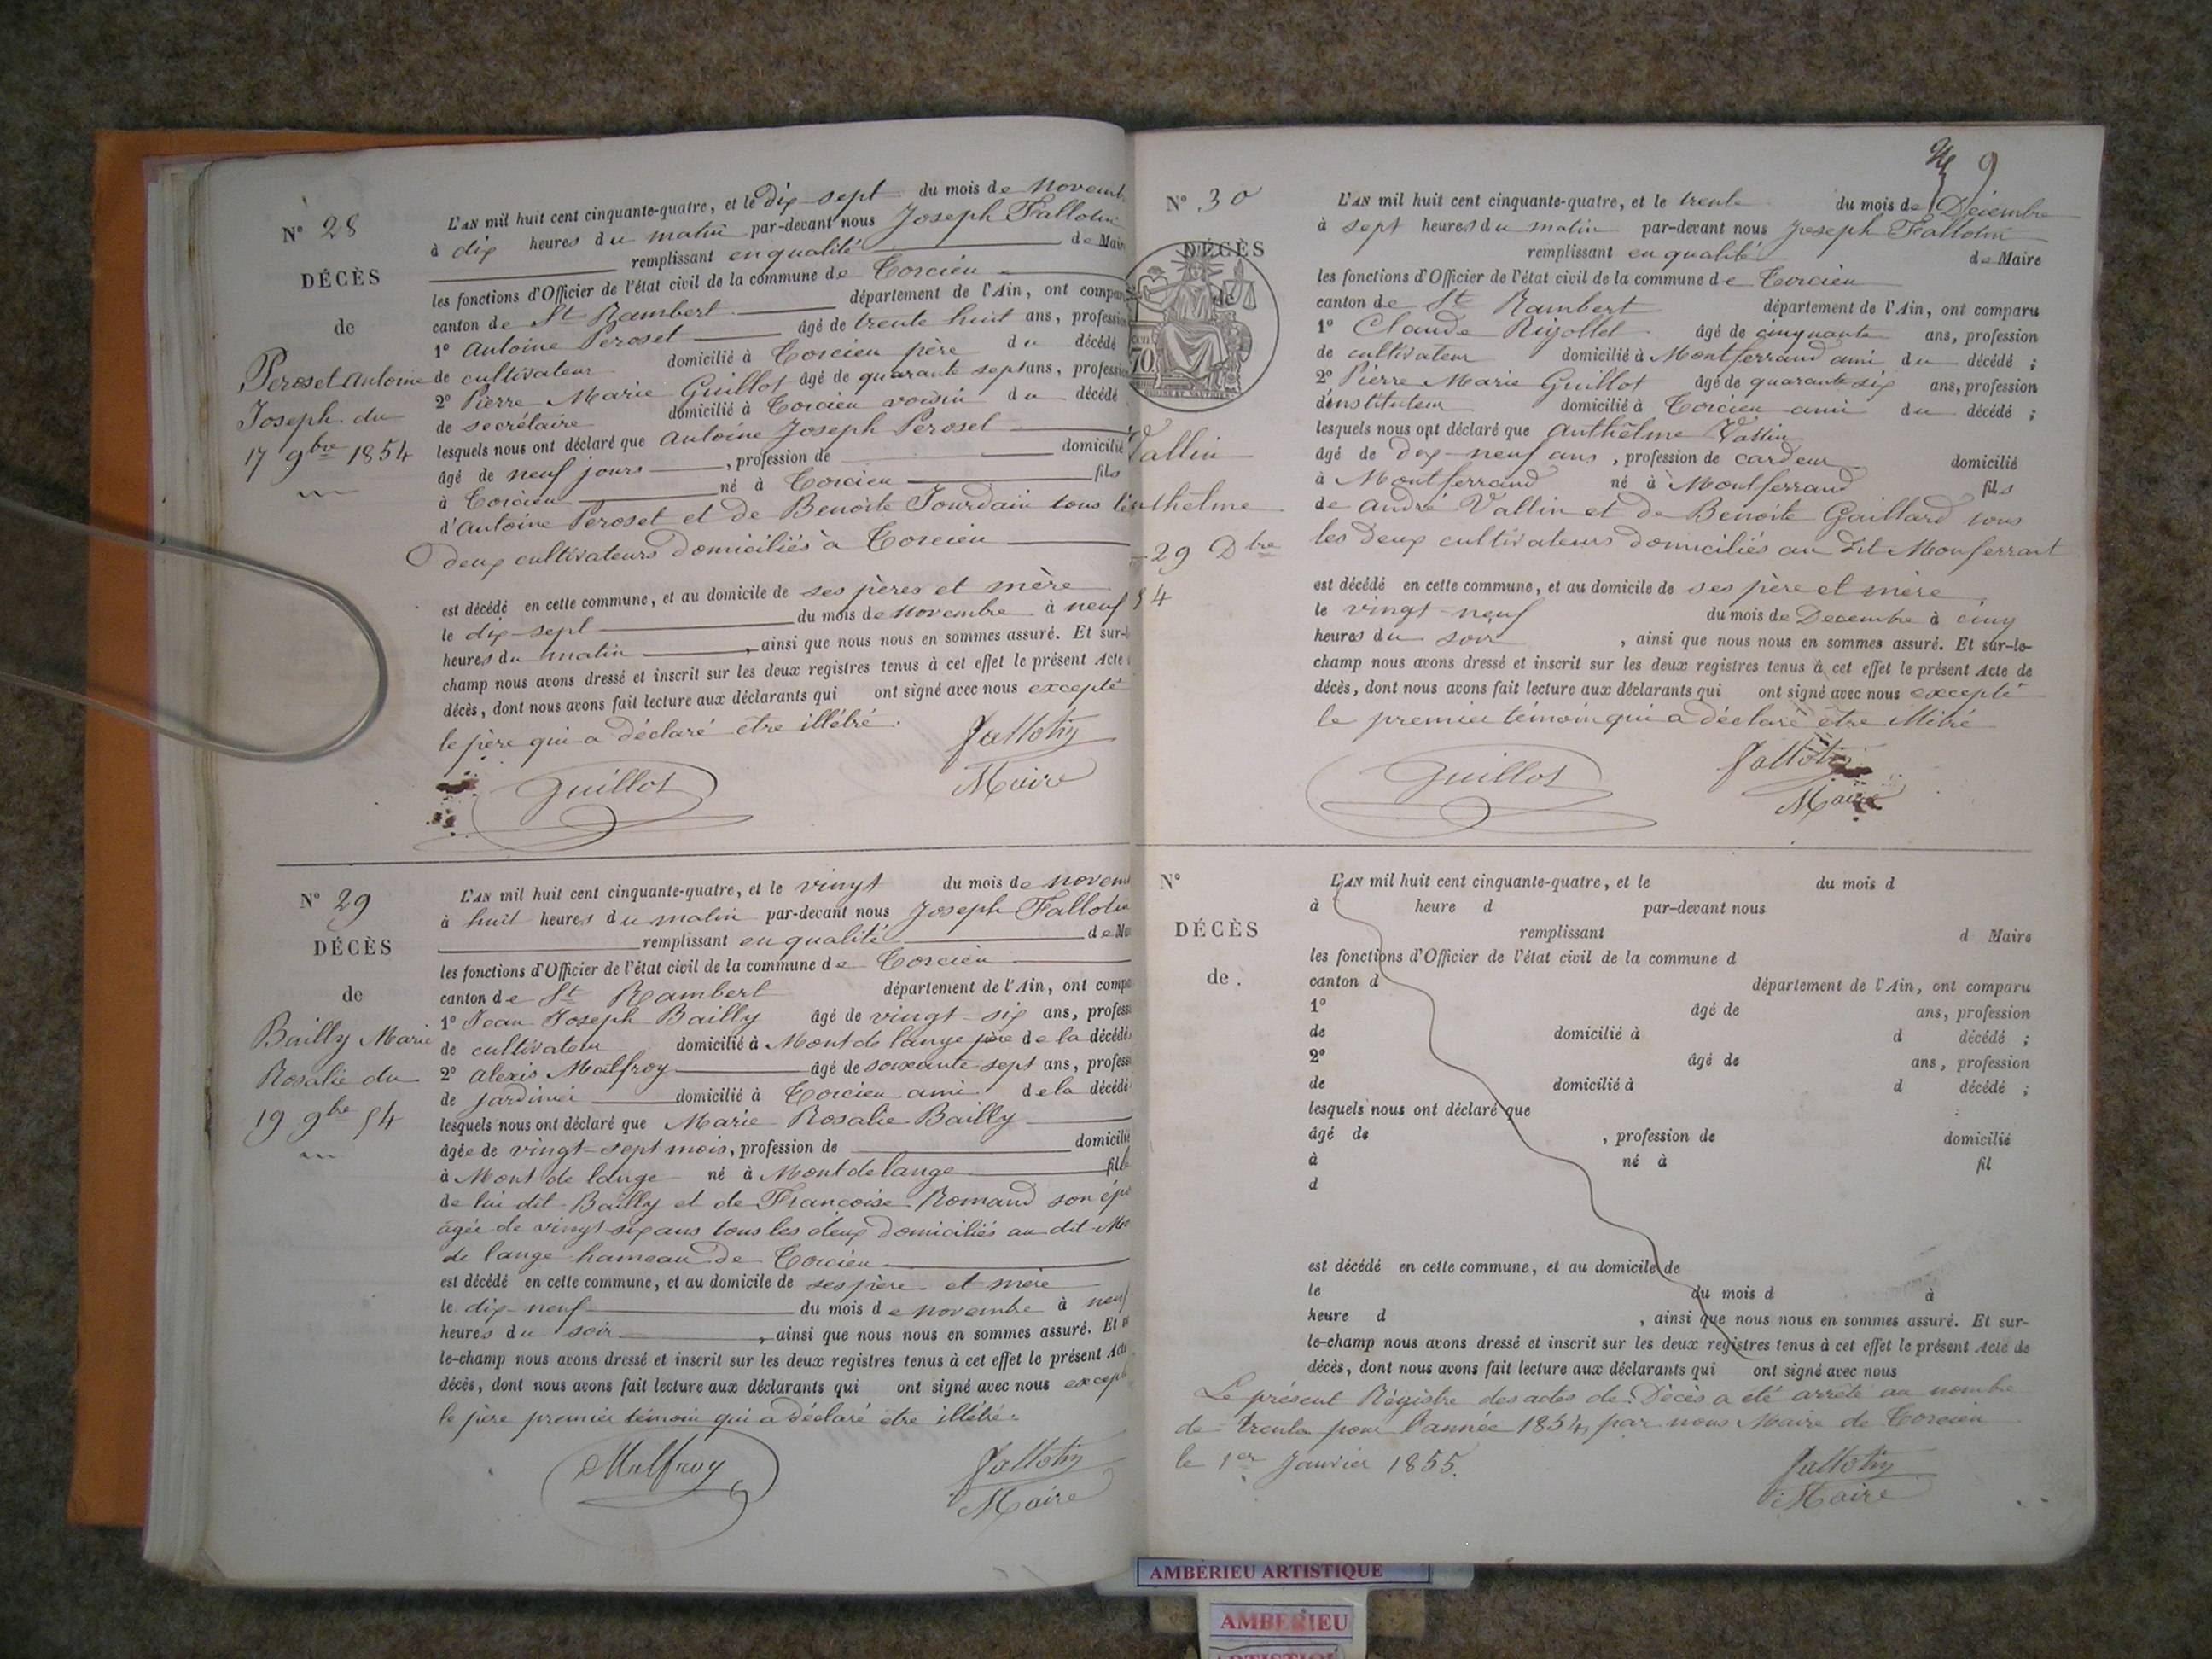 N° 28
DÉCÈS
de
Peroset Antoine
Joseph du
17 9bre 1854
L'AN mil huit cent cinquante-quatre, et le dix-sept du mois de Novemb
à dix heures du matin par-devant nous Joseph Fallotin
remplissant en qualité de Mair
les fonctions d'Officier de l'état civil de la commune de Torcieu
canton de St Rambert département de l'Ain, ont compar
1° Antoine Peroset âgé de trente huit ans, profession
de cultivateur domicilié à Torcieu père du décédé
2° Pierre Marie Guillot âgé de quarante sept ans, profession
de secrétaire domicilié à Torcieu voisin du décédé
lesquels nous ont déclaré que Antoine Joseph Peroset
âgé de neuf jours, profession de domicilié
à Torcieu né à Torcieu fils
d'Antoine Peroset et de Benoite Jourdain tous les
deux cultivateurs domiciliés à Torcieu
est décédé en cette commune, et au domicile de ses pères et mère
le dix-sept du mois de novembre à neuf
heures du matin, ainsi que nous nous en sommes assuré. Et sur-l
champ nous avons dressé et inscrit sur les deux registres tenus à cet effet le présent Acte
décès, dont nous avons fait lecture aux déclarants qui ont signé avec nous excepté
le père qui a déclaré être illétré.
Guillot
Fallotin
Maire
N° 29
DÉCÈS
de
Bailly Marie
Rosalie du
19 9bre 54
L'AN mil huit cent cinquante-quatre, et le vingt du mois de novem
à huit heures du matin par-devant nous Joseph Fallotin
remplissant en qualité de Ma
les fonctions d'Officier de l'état civil de la commune de Torcieu
canton de St Rambert département de l'Ain, ont compa
1° Jean Joseph Bailly âgé de vingt-six ans, profess
de cultivateur domicilié à Mont de lange père de la décédé
2° Alexis Malfroy âgé de soixante sept ans, profess
de jardinier domicilié à Torcieu ami de la décédé
lesquels nous ont déclaré que Marie Rosalie Bailly
âgée de vingt-sept mois, profession de domicilié
à Mont de lange né à Mont de lange fille
de lui dit Bailly et de Françoise Romand son épo
agée de vingt six ans tous les deux domiciliés au dit Mo
de lange hameau de Torcieu
est décédé en cette commune, et au domicile de ses père et mère
le dix-neuf du mois de novembre à neuf
heures du soir, ainsi que nous nous en sommes assuré. Et
le-champ nous avons dressé et inscrit sur les deux registres tenus à cet effet le présent Acte
décès, dont nous avons fait lecture aux déclarants qui ont signé avec nous except
le père premier témoin qui a déclaré être illétré.
Malfroy
Fallotin
Maire
9
N° 30
DÉCÈS
de
Vallin
nthelme
29 Dbre
54
L'AN mil huit cent cinquante-quatre, et le trente du mois de Décembre
à sept heures du matin par-devant nous Joseph Fallotin
remplissant en qualité de Maire
les fonctions d'Officier de l'état civil de la commune de Torcieu
canton de St Rambert département de l'Ain, ont comparu
1° Claude Rigollet âgé de cinquante ans, profession
de cultivateur domicilié à Montferrand ami du décédé ;
2° Pierre Marie Guillot âgé de quarante six ans, profession
d'instituteur domicilié à Torcieu ami du décédé ;
lesquels nous ont déclaré que Anthelme Vallin
âgé de dix-neuf ans, profession de cardeur domicilié
à Montferrand né à Montferrand fils
de André Vallin et de Benoite Gaillard tous
les deux cultivateurs domiciliés au dit Monferrant
est décédé en cette commune, et au domicile de ses père et mère
le vingt-neuf du mois de Decembre à cinq
heures du soir, ainsi que nous nous en sommes assuré. Et sur-le-
champ nous avons dressé et inscrit sur les deux registres tenus à cet effet le présent Acte de
décès, dont nous avons fait lecture aux déclarants qui ont signé avec nous excepté
le premier témoin qui a déclaré être illitré
Guillot
Fallotin
Maire
N°
DÉCÈS
de
L'AN mil huit cent cinquante-quatre, et le du mois d
à heure d par-devant nous
remplissant d Maire
les fonctions d'Officier de l'état civil de la commune d
canton d département de l'Ain, ont comparu
1° âgé de ans, profession
de domicilié à d décédé ;
2° âgé de ans, profession
de domicilié à d décédé ;
lesquels nous ont déclaré que
âgé de , profession de domicilié
à né à fil
d
est décédé en cette commune, et au domicile de
le du mois d à
heure d , ainsi que nous nous en sommes assuré. Et sur-
le-champ nous avons dressé et inscrit sur les deux registres tenus à cet effet le présent Acte de
décès, dont nous avons fait lecture aux déclarants qui ont signé avec nous
Le présent Régistre des actes de Décès a été arrêté au nombre
de trente pour l'année 1854, par nous Maire de Torcieu
le 1er Janvier 1855.
Fallotin
Maire
AMBÉRIEU ARTISTIQUE
AMBERIEU
ARTISTIQUE